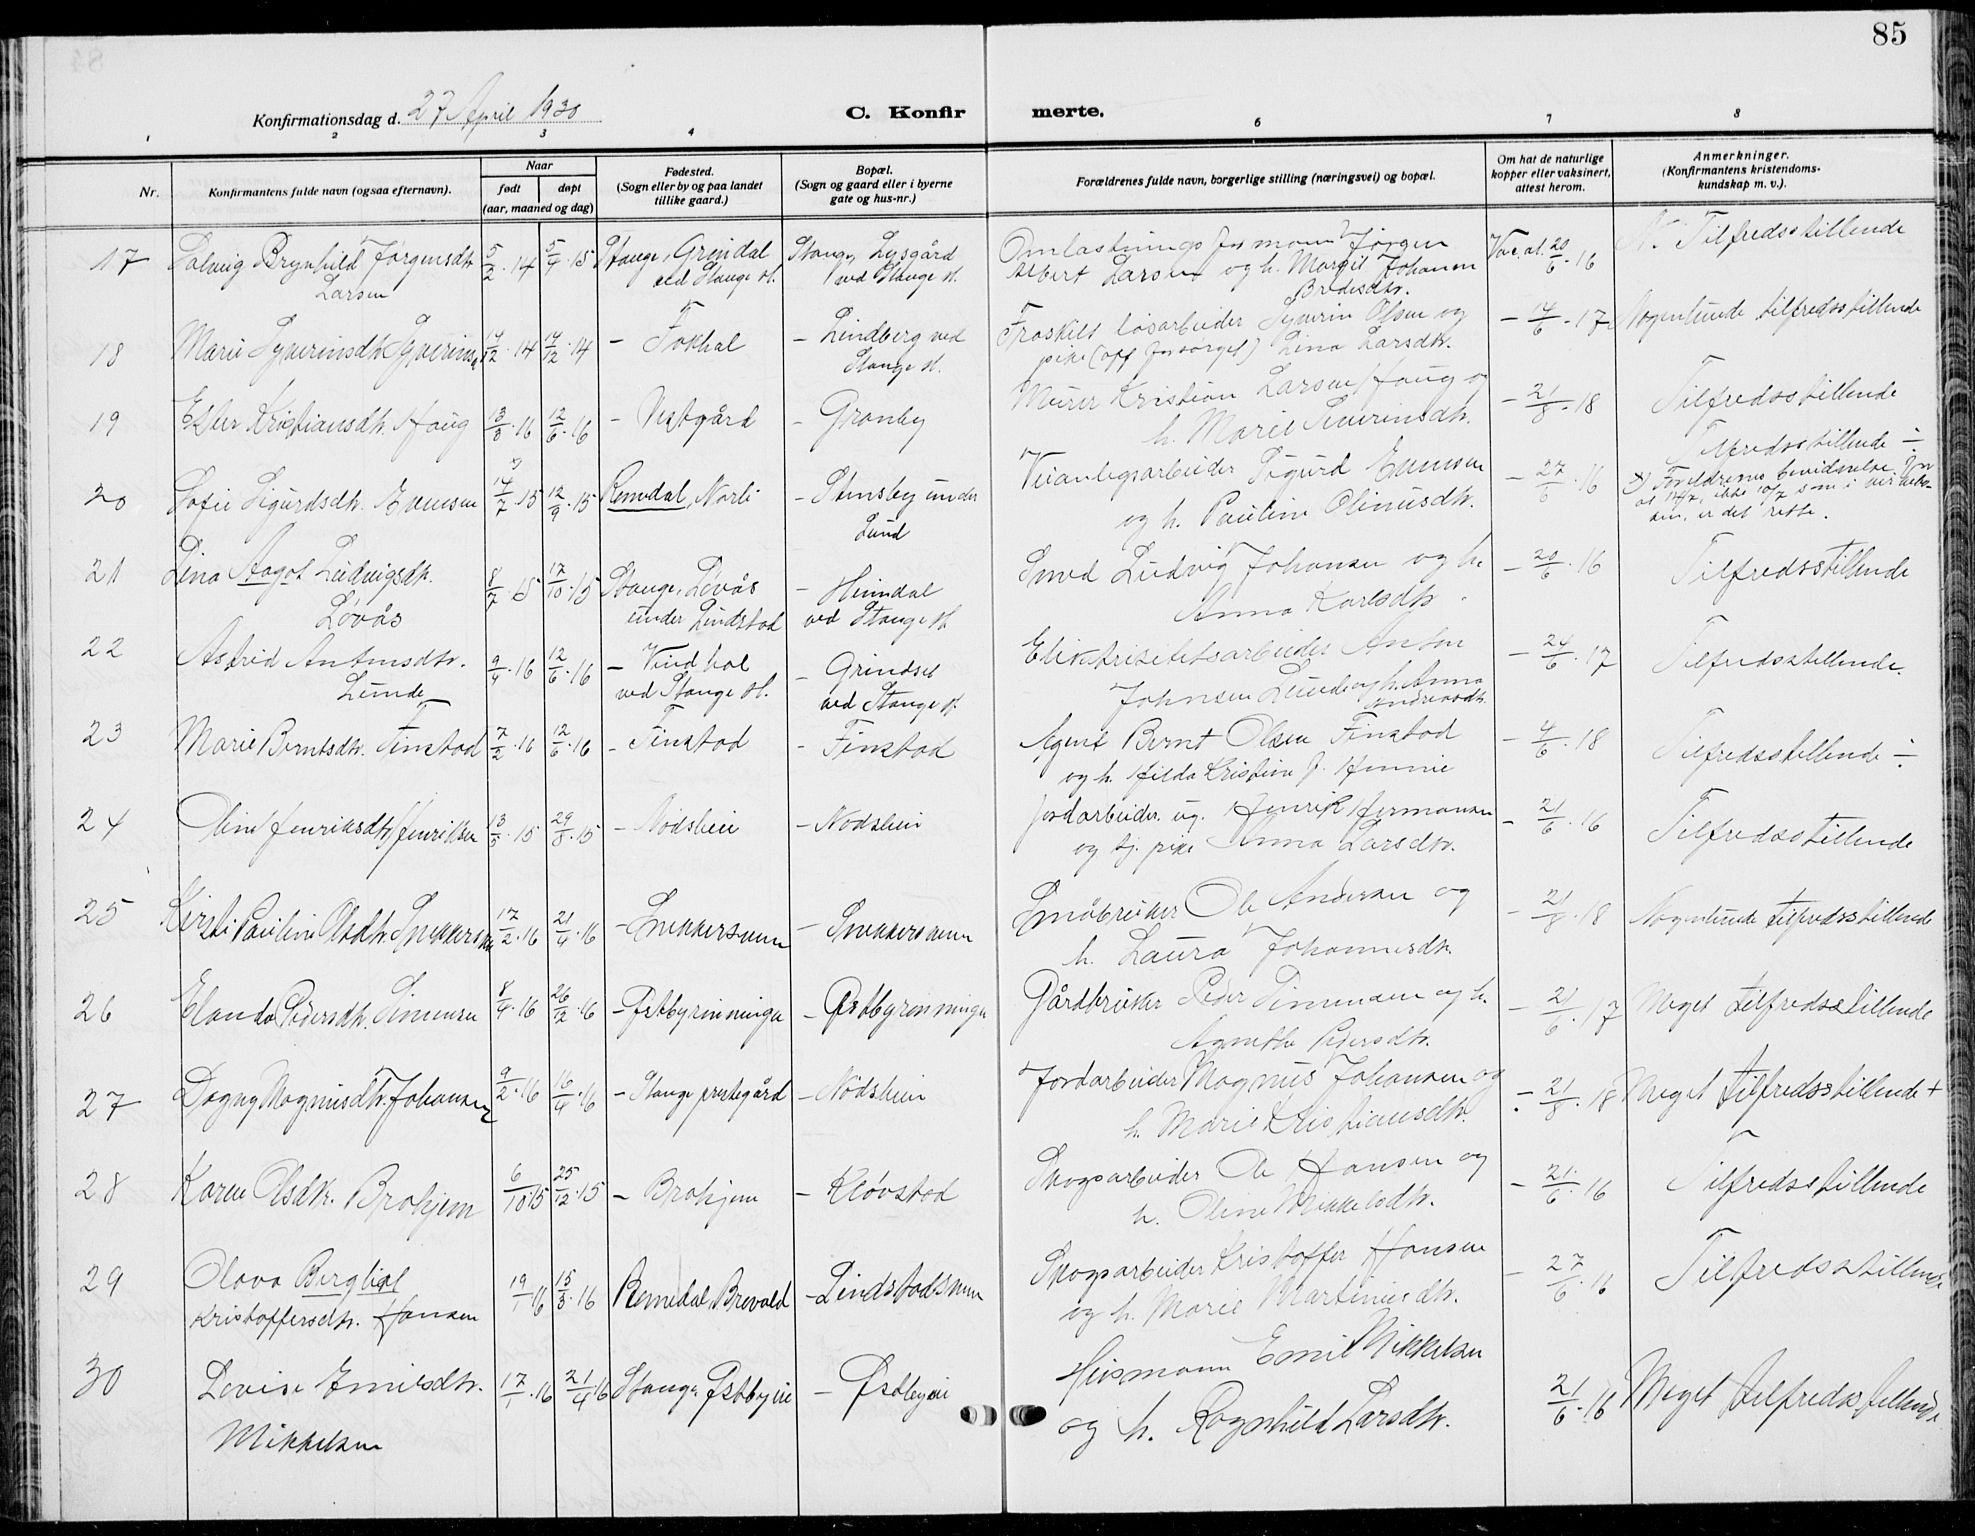 85
Konfirmationsdag d. 27 April 1930
C. Konfir
merte.
1 2 3 4 6 7 8
Nr.
Konfirmantens fulde navn (ogsaa efternavn).
Naar
født døpt
(aar, maaned og dag)
Fødested.
(Sogn eller by og paa landet
tillike gaard.)
Bopæl.
(Sogn og gaard eller i byerne
gate og hus-nr.)
Forældrenes fulde navn, borgerlige stilling (næringsvei) og bopæl.
Om hat de naturlige
kopper eller vaksinert,
attest herom.
Anmerkninger.
(Konfirmantens kristendoms-
kundskap m. v.)
17 Solveig Brynhild Jørgensdtr. 5/2.14 5/4.15 Stange, Grindal Stange, Lysgård Omlastningsformann Jørgen Vac.at. 20/6.16 N. Tilfredsstillende
Larsen ved Stange st. ved Stange st. Albert Larsen og h. Margit Johanne
Bredesdtr.
18 Marie Syverinsdtr. 14 14/12.14 – Fokhol – Lindberg ved Fraskilt løsarbeider Syverin Olsen og – 14/6.17 Nogenlunde tilfredsstillende
Stange st. pike (off. forsørget) Lina Larsdtr.
19 Ester Kristiansdtr. Haug 13/3.16 12/6.16 – Vestgård – Granby Murer Kristian Larsen Haug og – 21/8.18 Tilfredsstillende
h. Marie Severinsdtr.
20 Sofie Sigurdsdtr. Evensen 14/7.15 12/9.15 Romedal, Norli – Stensby under Veianlegsarbeider Sigurd Evensen – 27/6.16 Tilfredsstillende ÷
Lund og h. Pauline Olinusdtr. x) Foreldrenes bevidnelse om
at 14/7, ikke 10/7 som i
er det rette.
21 Lina Aagot Ludvigsdtr. 8/7.15 17/10.15 Stange, Løvås – Heimdal Smed Ludvig Johansen og h. – 20/6.16 Tilfredsstillende
Løvås under Lindstad ved Stange st. Anna Karlsdtr.
22 Astrid Antonsdtr. 9/4.16 12/6.16 – Vindhol – Grindset Elektrisitetsarbeider Anton – 24/6.17 Tilfredsstillende.
Lunde ved Stange st. ved Stange st. Johnsen Lunde og h. Anna
Andreasdtr.
23 Marie Berntsdtr. Finstad 7/2.16 12/6.16 – Finstad – Finstad Agent Bernt Olsen Finstad – 4/6.18 Tilfredsstillende ÷
og h. Hilda Kristine
24 Oline Henriksdtr. Henriksen 13/5.15 29/8.15 – Nodsheie – Nodsheie Jordarbeider ug. Henrik Hermansen – 21/6.16 Tilfredsstillende
og tj. pike Anna Larsdtr.
25 Kirsti Pauline Olsdtr. 17/2.16 21/4.16 – Snekkersveen – Snekkersveen Småbruker Ole Andersen og – 21/8.18 Nogenlunde tilfredsstillende
h. Laura Johannesdtr.
26 Elanda Pedersdtr. Simensen 8/4.16 26/2.16 – Østbyrønninga – Østbyrønninga Gårdbruker Peder Simensen og h. – 21/6.17 Meget tilfredsstillende
Agnethe Pedersdtr.
27 Dagny Magnusdtr. Johansen 9/2.16 16/4.16 – Stange prestegård – Nodsheie Jordarbeider Magnus Johansen og – 21/8.18 Meget tilfredsstillende +
h. Marie Kristiansdtr.
28 Karen Olsdtr. Brohjem 6/10.15 25/12.15 – Brohjem – Kløvstad Skogsarbeider Ole Hansen og – 21/6.16 Tilfredsstillende
h. Oline Mikkelsdtr.
29 Olava Bergliot 19/1.16 15/3.16 Romedal, Brevald – Lindstadsveen Skogsarbeider Kristoffer Hansen – 27/6.16 Tilfredsstillende
Kristoffersdtr. Hansen og h. Marie Martinusdtr.
30 Lovise Emilsdtr. 17/1.16 21/4.16 Stange, Østbyeie – Østbyeie Husmann Emil Mikkelsen 21/6.16 Meget tilfredsstillende
Mikkelsen og h. Ragnhild Larsdtr.